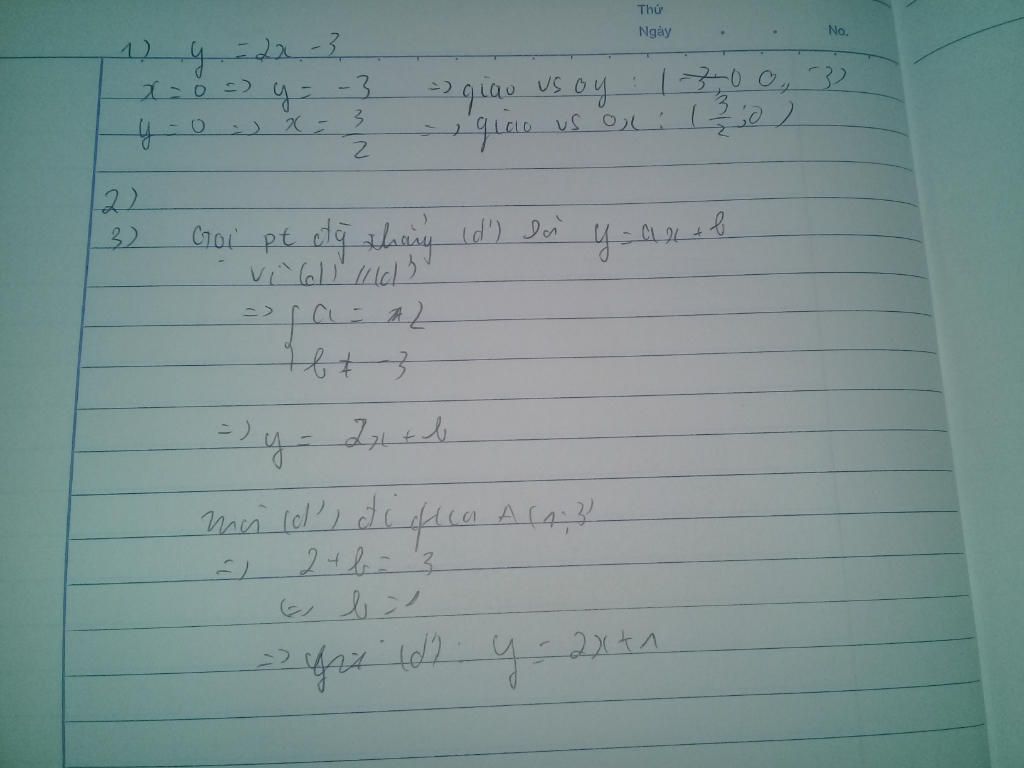 Thứ
Ngày . . No.
1) y = 2x - 3
x = 0 => y = -3 => giao vs oy : ( 0, -3)
y = 0 => x = 3/2 => giao vs Ox : ( 3/2 ; 0 )
2)
3) Gọi pt đg thẳng (d') là y = ax + b
Vì (d) // (d')
=> { a = 2
b ≠ -3
=> y = 2x + b
mà (d') đi qua A (1; 3)
=> 2 + b = 3
<=> b = 1
=> (d') : y = 2x + 1